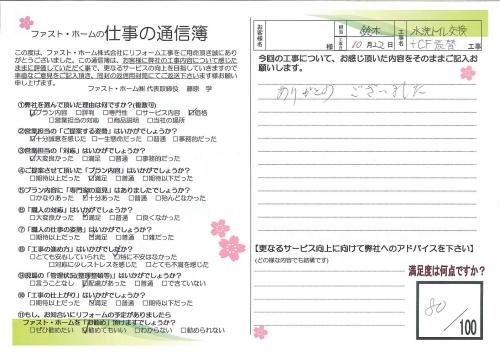 ファスト・ホームの仕事の通信簿
この度は、ファスト・ホーム株式会社にリフォーム工事をご用命頂き誠にあり
がとうございました。この通信簿は、お客様に弊社の工事内容について感じた
ままに評価していただく事で、更なるサービスの向上を目指していきますので
率直なご意見をご記入頂き、同封の返信用封筒にてご返送下さいます様お願い
申し上げます。
ファスト・ホーム㈱ 代表取締役 藤原 学
①弊社を選んで頂いた理由は何ですか?(複数可)
☑プラン内容 □評判 □専門性 □サービス内容 ☑価格
□営業担当の対応 □商品説明 □当社の場所
②営業担当の「ご提案する姿勢」はいかがでしたか?
☑十分誠意を感じた □一生懸命だった □普通 □事務的だった
③営業担当の「対応」はいかがでしたか?
☑大変良かった □満足 □普通 □事務的だった
④ご提案させて頂いた「プラン内容」はいかがでしたか?
□期待以上だった ☑満足 □普通 □期待以下だった
⑤プラン内容に「専門家の意見」はありましたでしょうか?
□かなりあった ☑十分あった □普通 □殆んどなかった
⑥「職人の対応」はいかがでしたか?
□大変良かった ☑満足 □普通 □良くなかった
⑦「職人の仕事の姿勢」はいかがでしたか?
□期待以上だった ☑満足 □普通 □雑だった
⑧「工事の進め方」はいかがでしたか?
□とても安心しておれた ☑特に不安はなかった
□対応に少しストレスを感じた □とても不満を感じた
⑨現場の「管理状況(整理整頓等)」はいかがでしたか?
□言うことなし ☑配慮があった □普通 □できていない
⑩「工事の仕上がり」はいかがでしたか?
□期待以上だった ☑満足 □普通 □期待以下だった
⑪もし、お知合いにリフォームの予定がありましたら
ファスト・ホームを「お勧め」頂けますでしょうか?
□ぜひ勧めたい ☑勧めてもいい □わからない □勧められない
お客様名 様 担当 鈴木 工事名 水洗トイレ交換
工事日 10月22日 +CF張替 工事
今回の工事について、お感じ頂いた内容をそのままご記入お
願いします。
ありがとうございました
【更なるサービス向上に向けて弊社へのアドバイスを下さい】
(どの様な内容でも結構です)
満足度は何点ですか?
80
/100